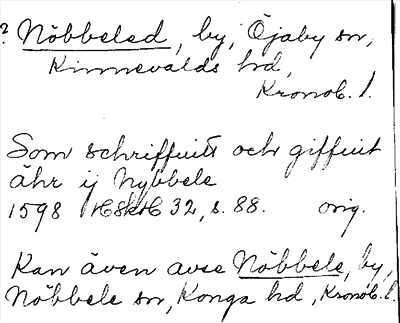 ? Nöbbeled, by, Öjaby sn,
Kinnevalds hd,
Kronob. l.
Som schriffuitt och giffuit
ähr ij Nybbele
1598 HSkH 32, s. 88. orig.
Kan även avse Nöbbele, by,
Nöbbele sn, Konga hd, Kronob. l.